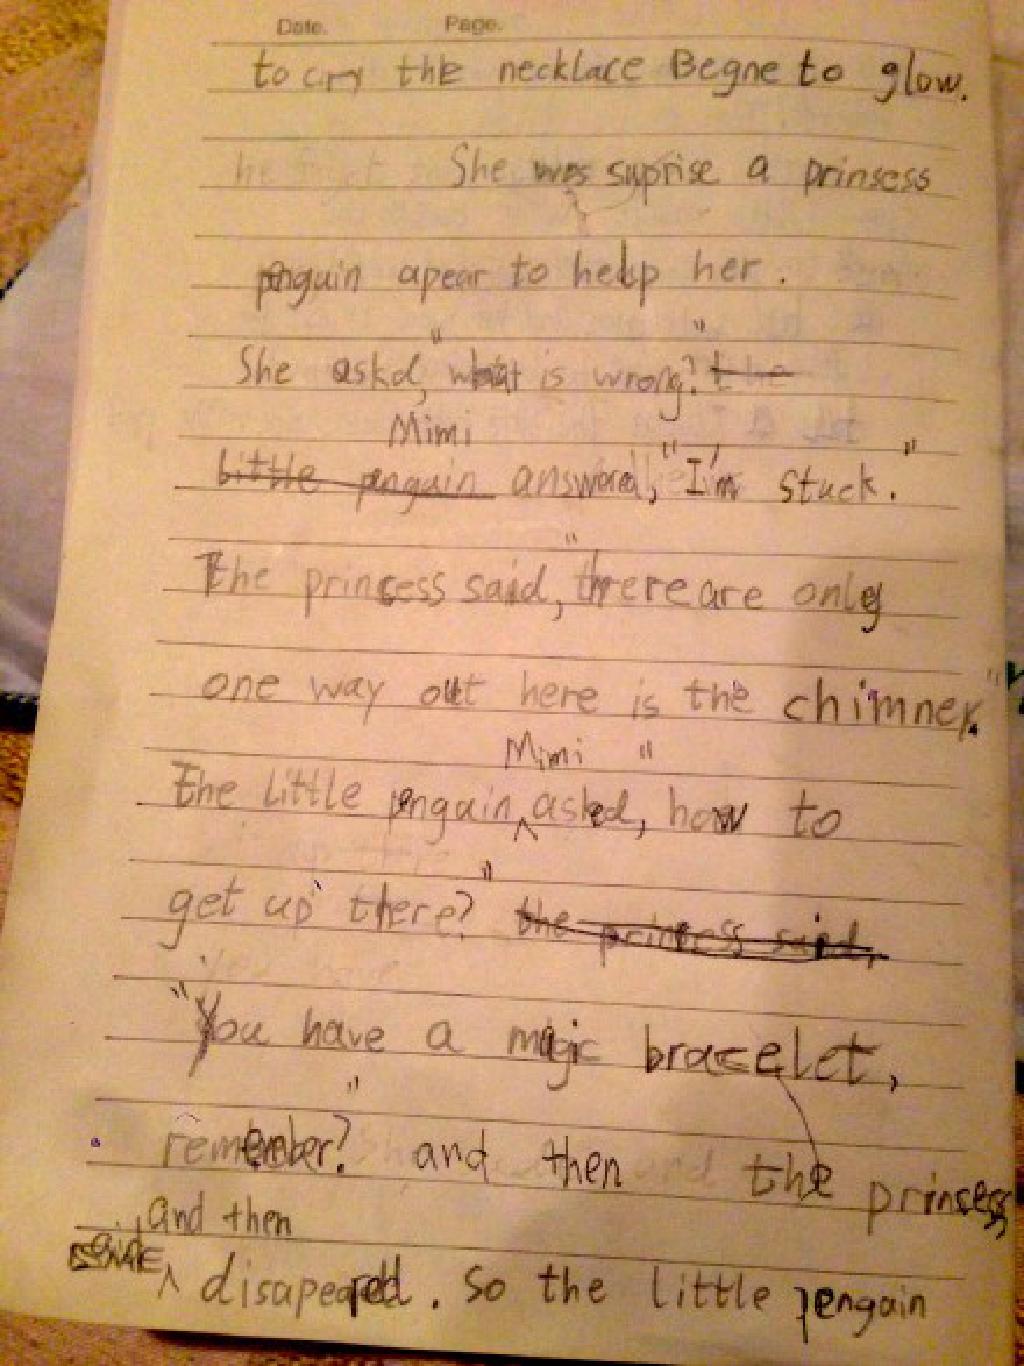 Date. Page.
to cry the necklace Begne to glow.
She was suprise a prinsess
pengain apear to help her.
She askd, "what is wrong?" the
Mimi
little pengain answered, "I'm stuck."
The princess said, "there are only
one way out here is the chimney."
Mimi
The little pengain asked, "how to
get up there?" the princess said,
"You have a magic bracelet,
remember?" and then the prinsess
and then
disapeared. So the little pengain